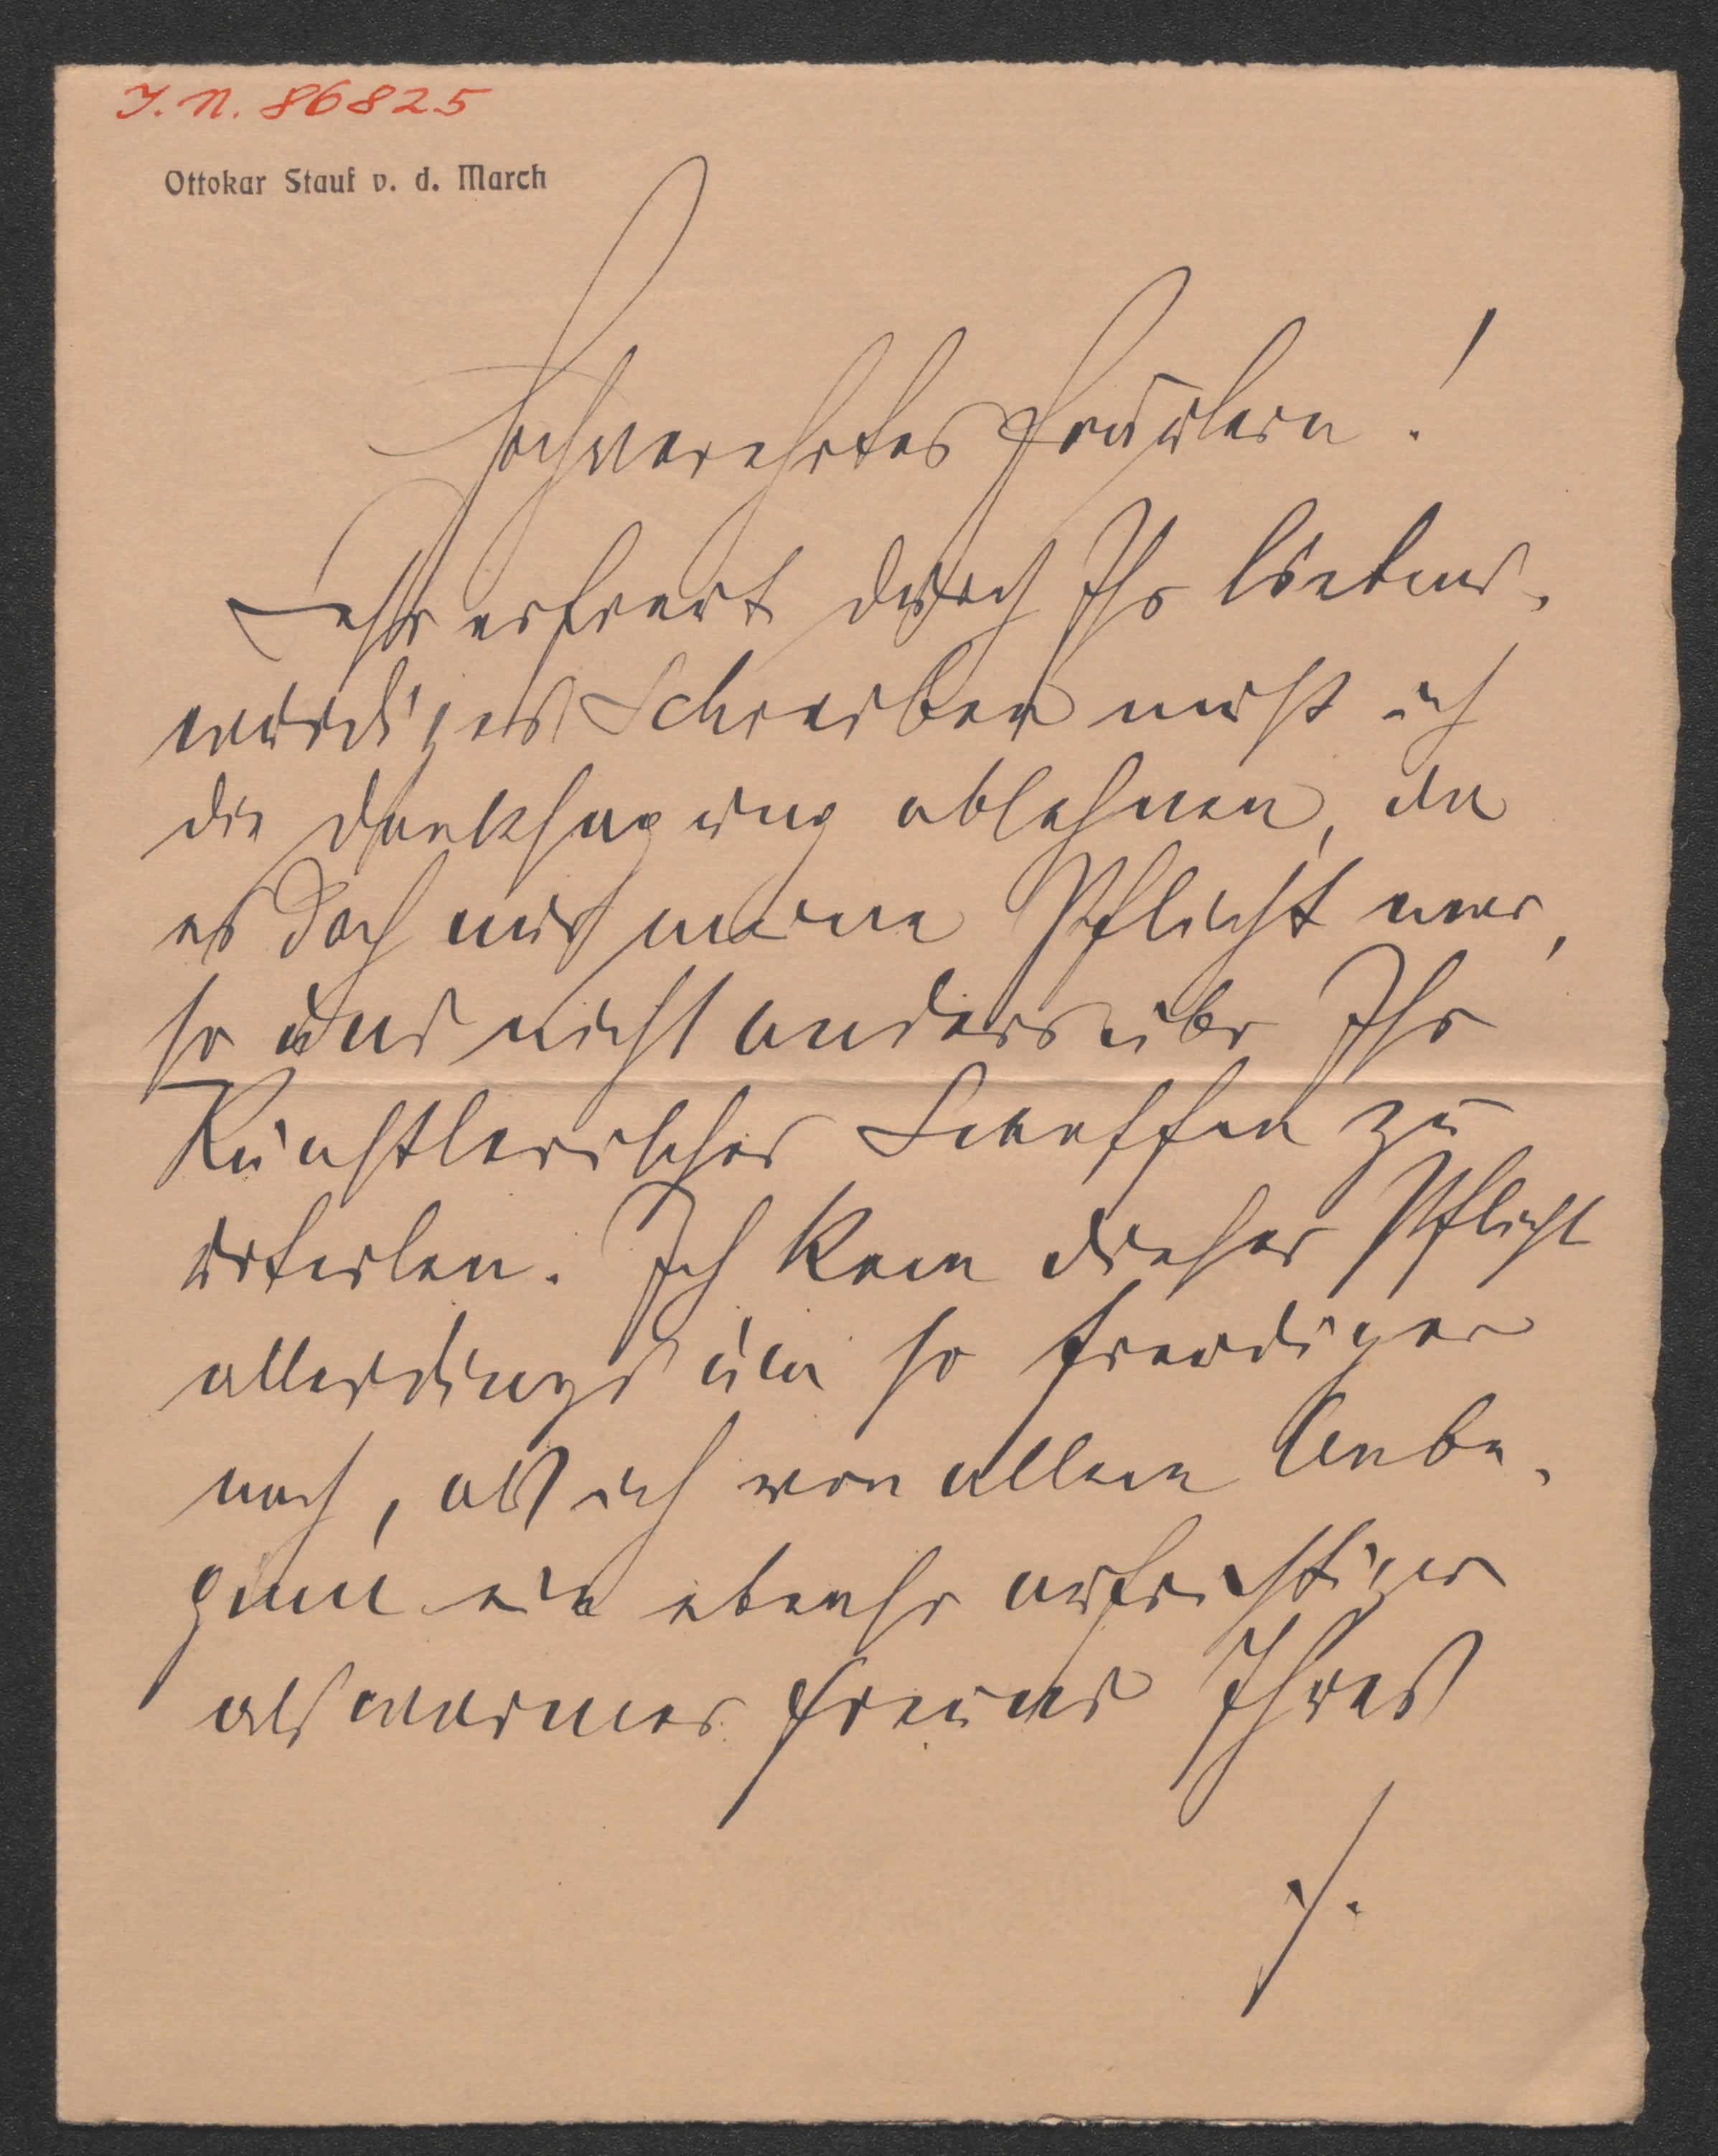 I. N. 86825
Ottokar Stauf v. d. March
Hochverehrtes Fräulein!
Sehr erfreut durch Ihr liebens-
würdiges Schreiben muß ich
die Danksagung ablehnen, da
es doch nur meine Pflicht war,
so und nicht anders über Ihr
künstlerisches Schaffen zu
urteilen. Ich kam dieser Pflicht
allerdings um so freudiger
nach, als ich von allem Anbe-
ginn ein ebenso aufrichtiger
als warmer Freund Ihres